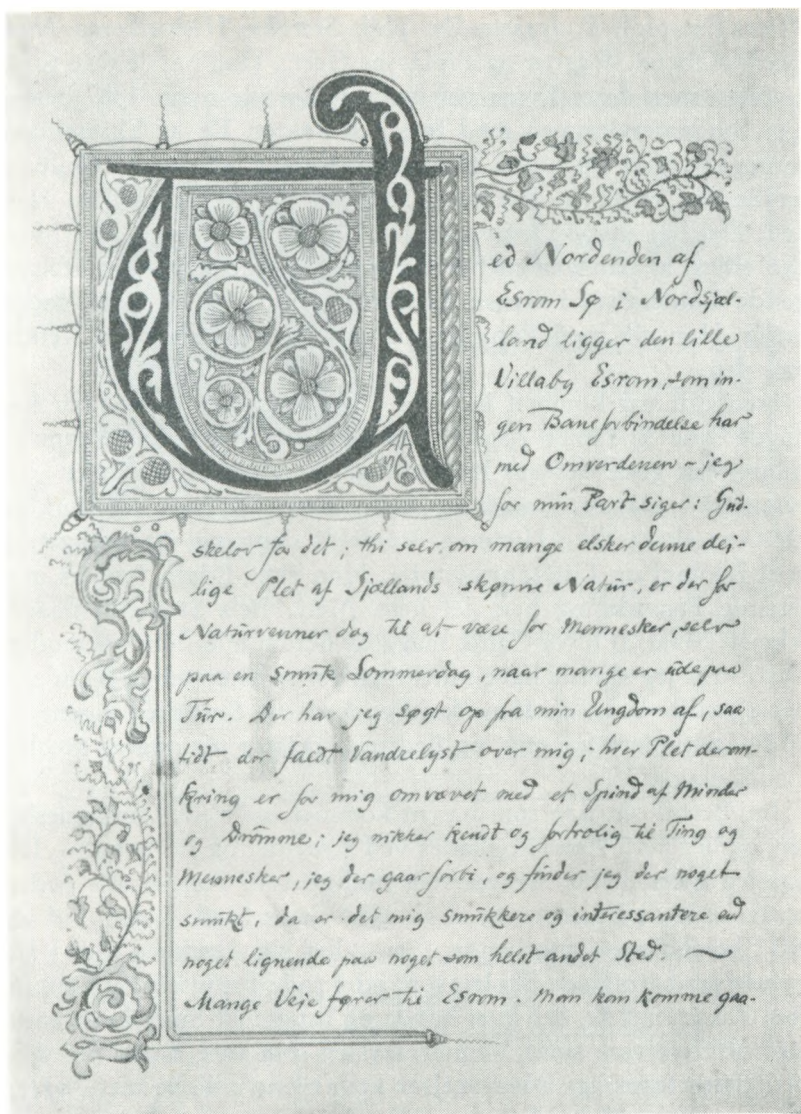 Ved Nordenden af
Esrom Sø i Nordsjæl-
land ligger den lille
Villaby Esrom, som in-
gen Baneforbindelse har
med Omverdenen - jeg
for min Part siger: Gud-
skelov for det; thi selv om mange elsker denne dej-
lige Plet af Sjællands skønne Natur, er der for
Naturvenner dog til at være for Mennesker, selv
paa en smuk Sommerdag, naar mange er ude paa
Tur. Der har jeg søgt op fra min Ungdom af, saa
tidt der faldt Vandrelyst over mig; hver Plet derom-
kring er for mig omvævet med et Spind af Minder
og Drømme; jeg nikker kendt og fortrolig til Ting og
Mennesker, jeg der gaar forbi, og finder jeg der noget
smukt, da er det mig smukkere og interessantere end
noget lignende paa noget som helst andet Sted. —
Mange Veje fører til Esrom. Man kan komme gaa-